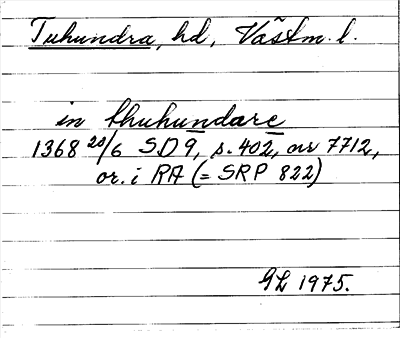 Tuhundra, hd, Västm. l.
in thuhundare
1368 20/6 SD 9, s. 402, nr 7712,
or. i RA (= SRP 822)
GL 1975.